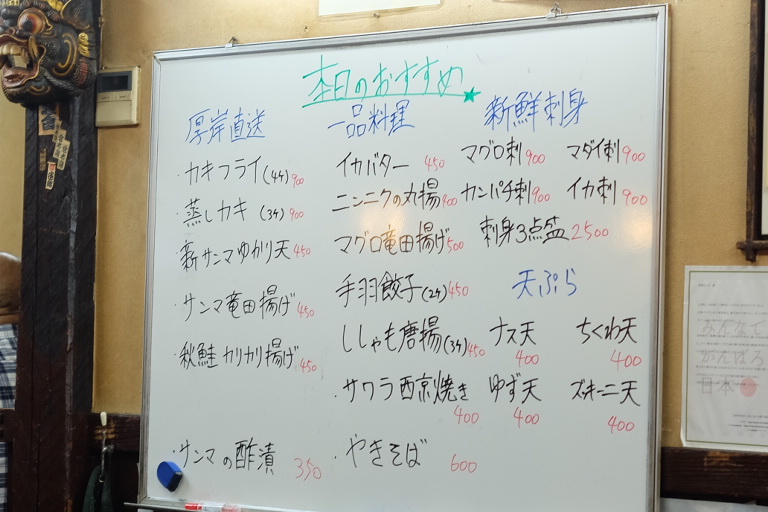 本日のおすすめ★
厚岸直送
・カキフライ(4ケ)900
・蒸しカキ (3ケ)900
・新サンマゆかり天450
・サンマ竜田揚げ450
・秋鮭カリカリ揚げ450
・サンマの酢漬 350
一品料理
イカバター 450
ニンニクの丸揚400
マグロ竜田揚げ500
手羽餃子(2ケ)450
ししゃも唐揚(3ケ)450
・サワラ西京焼き
400
・やきそば 600
新鮮刺身
マグロ刺900 マダイ刺900
カンパチ刺900 イカ刺900
刺身3点盛2500
天ぷら
ナス天 ちくわ天
400 400
ゆず天 ズッキーニ天
400 400
みんなで
がんばろう
日本